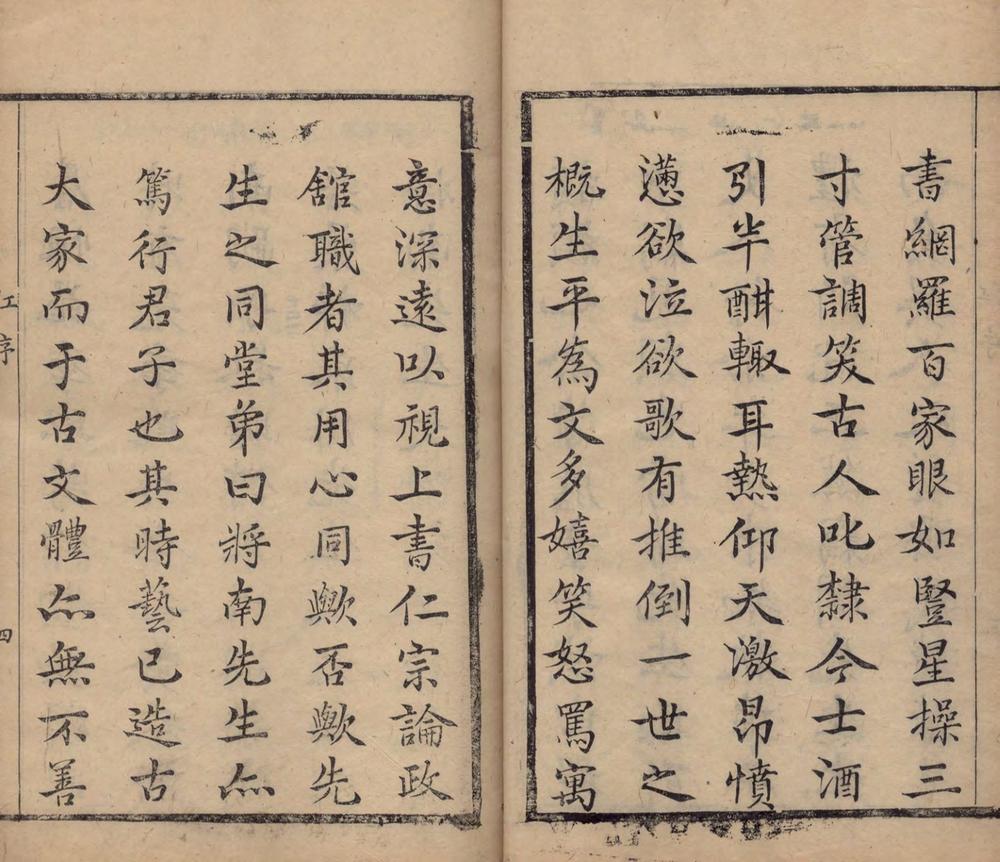 書網羅百家眼如豎星操三
寸管調笑古人叱隸今士酒
引半酣輙耳熱仰天激昂憤
懣欲泣欲歌有推倒一世之
概生平為文多嬉笑怒罵寓
意深遠以視上書仁宗論政
舘職者其用心同歟否歟先
生之同堂弟曰將南先生亦
篤行君子也其時藝已造古
大家而于古文體亦無不善
序
四